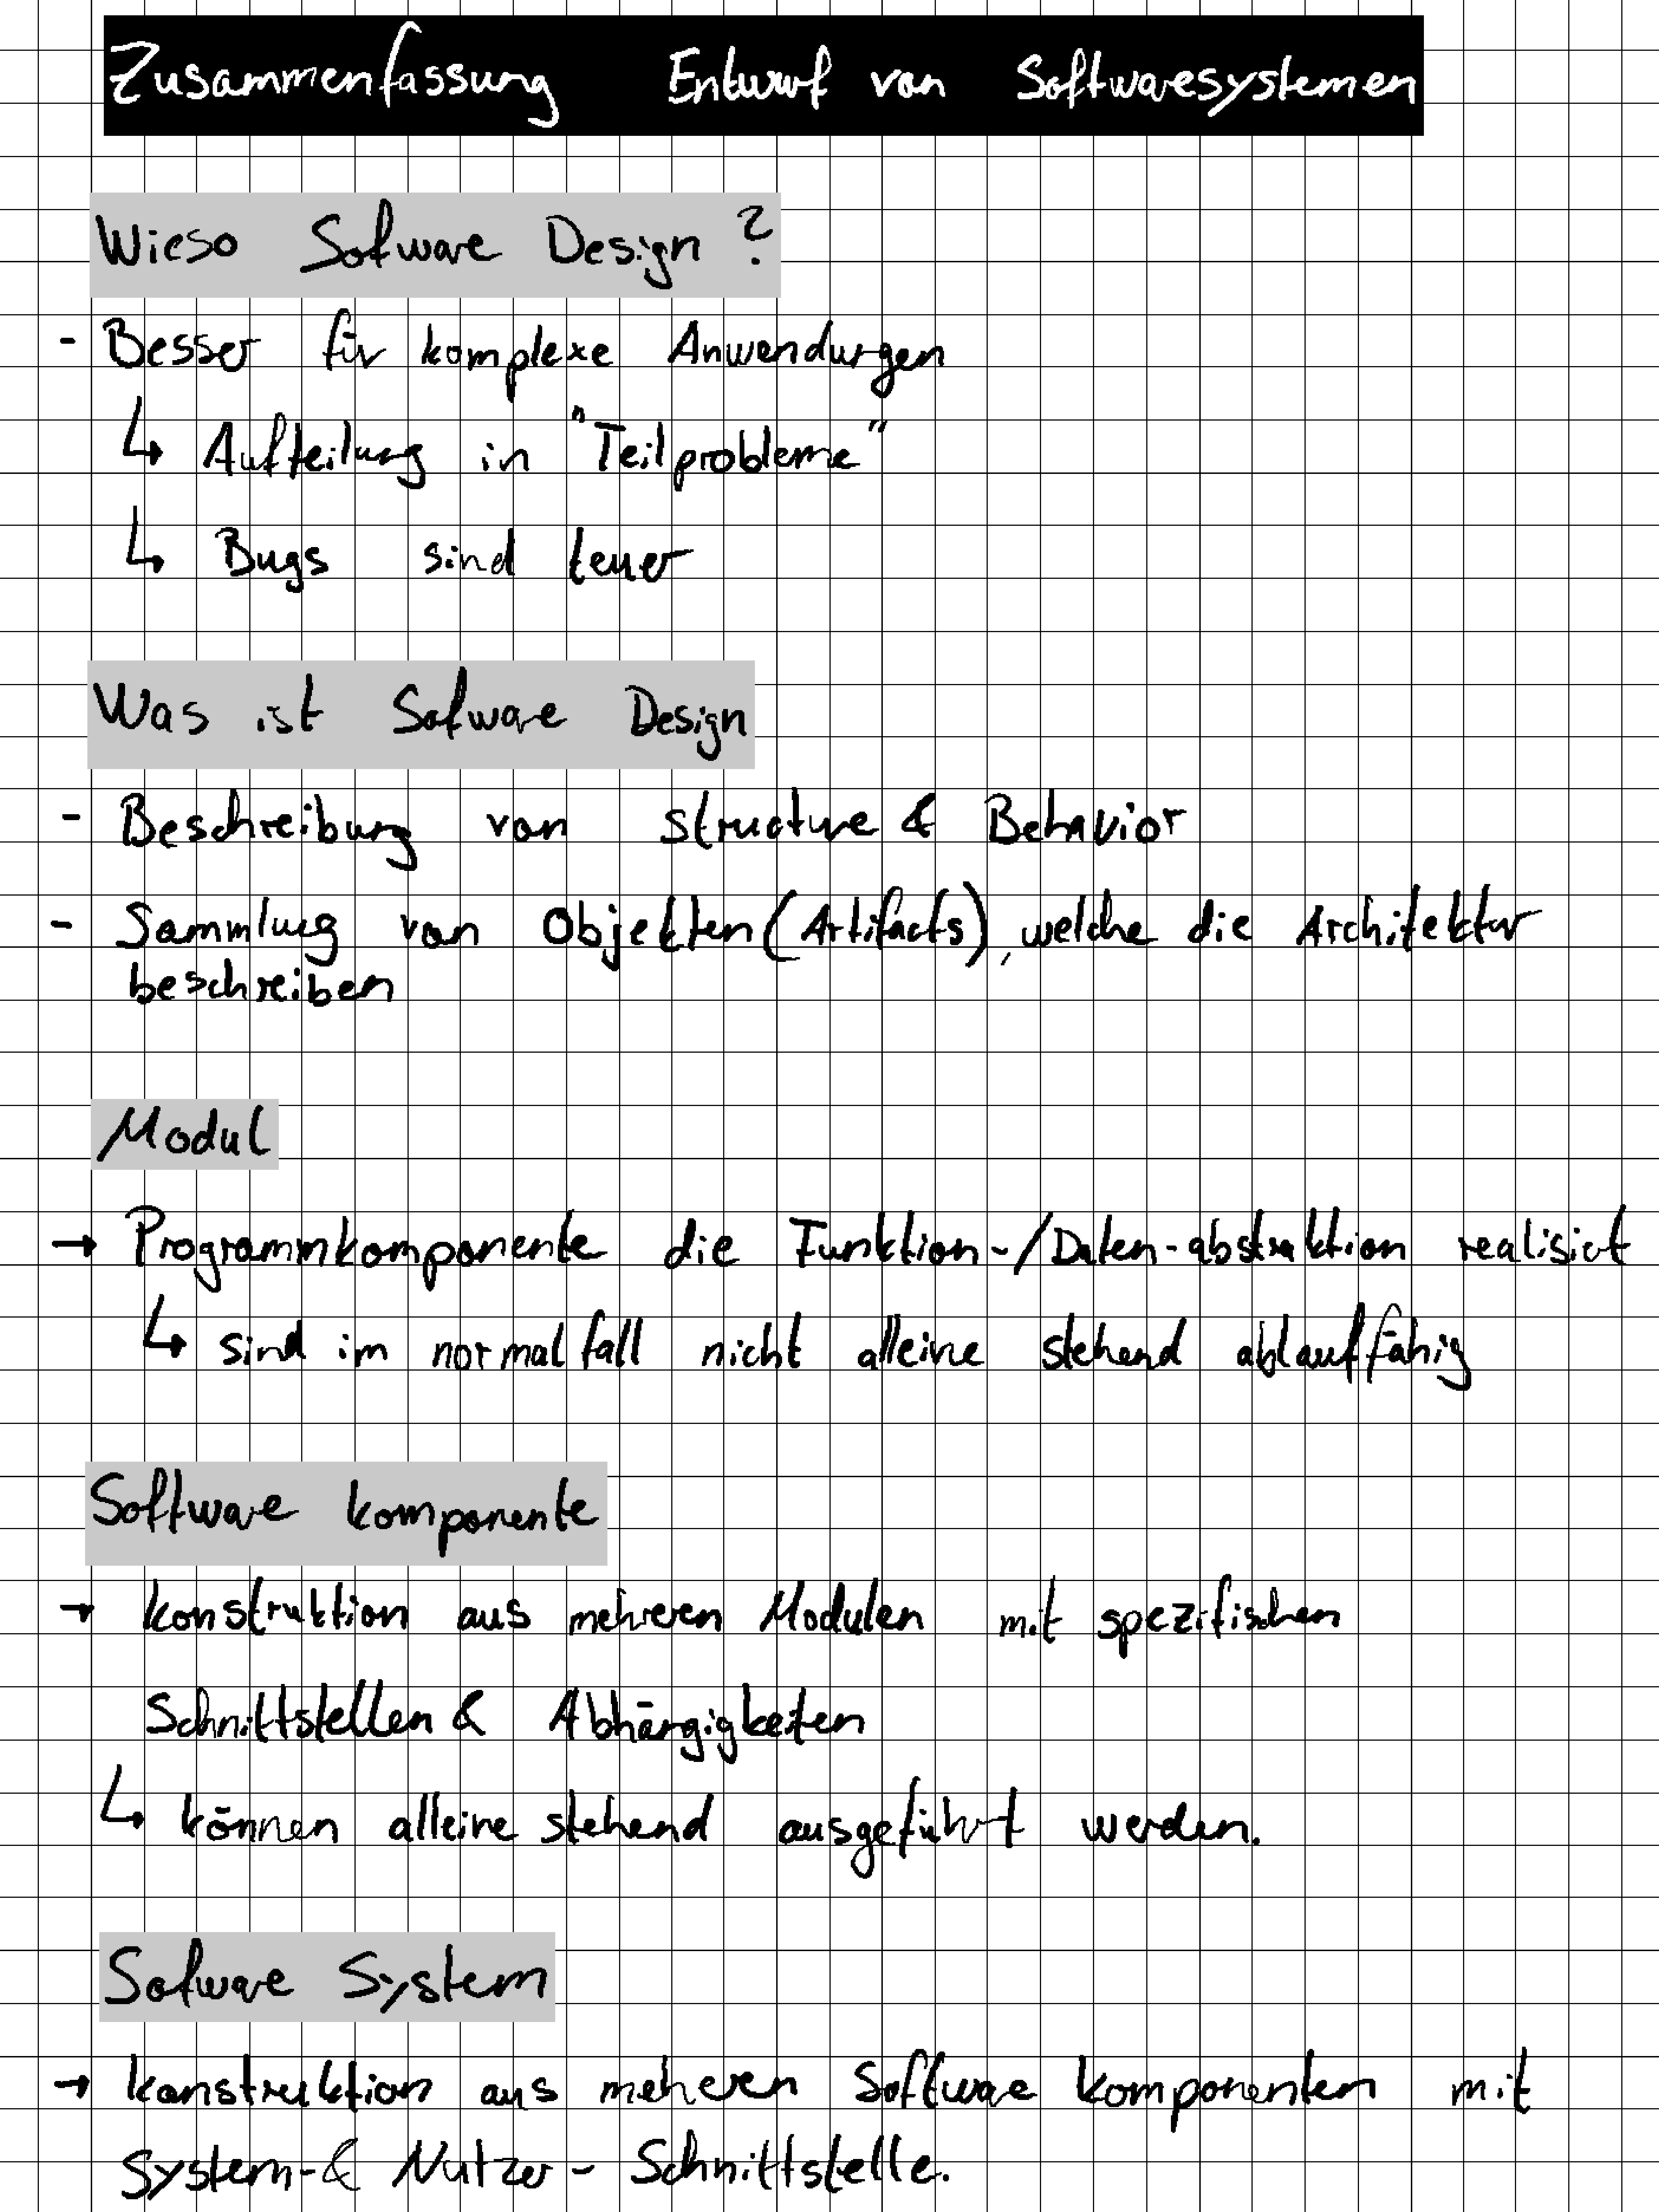 Zusammenfassung Entwurf von Softwaresystemen
Wieso Sofware Design ?
- Besser für komplexe Anwendungen
↳ Aufteilung in "Teilprobleme"
↳ Bugs sind teuer
Was ist Sofware Design
- Beschreibung von Structure & Behavior
- Sammlung von Objekten (Artifacts), welche die Architektur
beschreiben
Modul
→ Programmkomponente die Funktion-/Daten-abstraktion realisiert
↳ sind im normalfall nicht alleine stehend ablauffähig
Software komponente
→ konstruktion aus mehreren Modulen mit spezifischen
Schnittstellen & Abhängigkeiten
↳ können alleine stehend ausgeführt werden.
Sofware System
→ konstruktion aus meheren Software komponenten mit
System- & Nutzer - Schnittstelle.